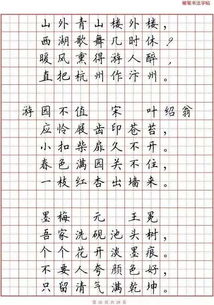 硬笔书法字帖
山外青山楼外楼，
西湖歌舞几时休？
暖风熏得游人醉，
直把杭州作汴州。
游园不值 宋 叶绍翁
应怜屐齿印苍苔，
小扣柴扉久不开。
春色满园关不住，
一枝红杏出墙来。
墨梅 元 王冕
吾家洗砚池头树，
个个花开淡墨痕。
不要人夸颜色好，
只留清气满乾坤。